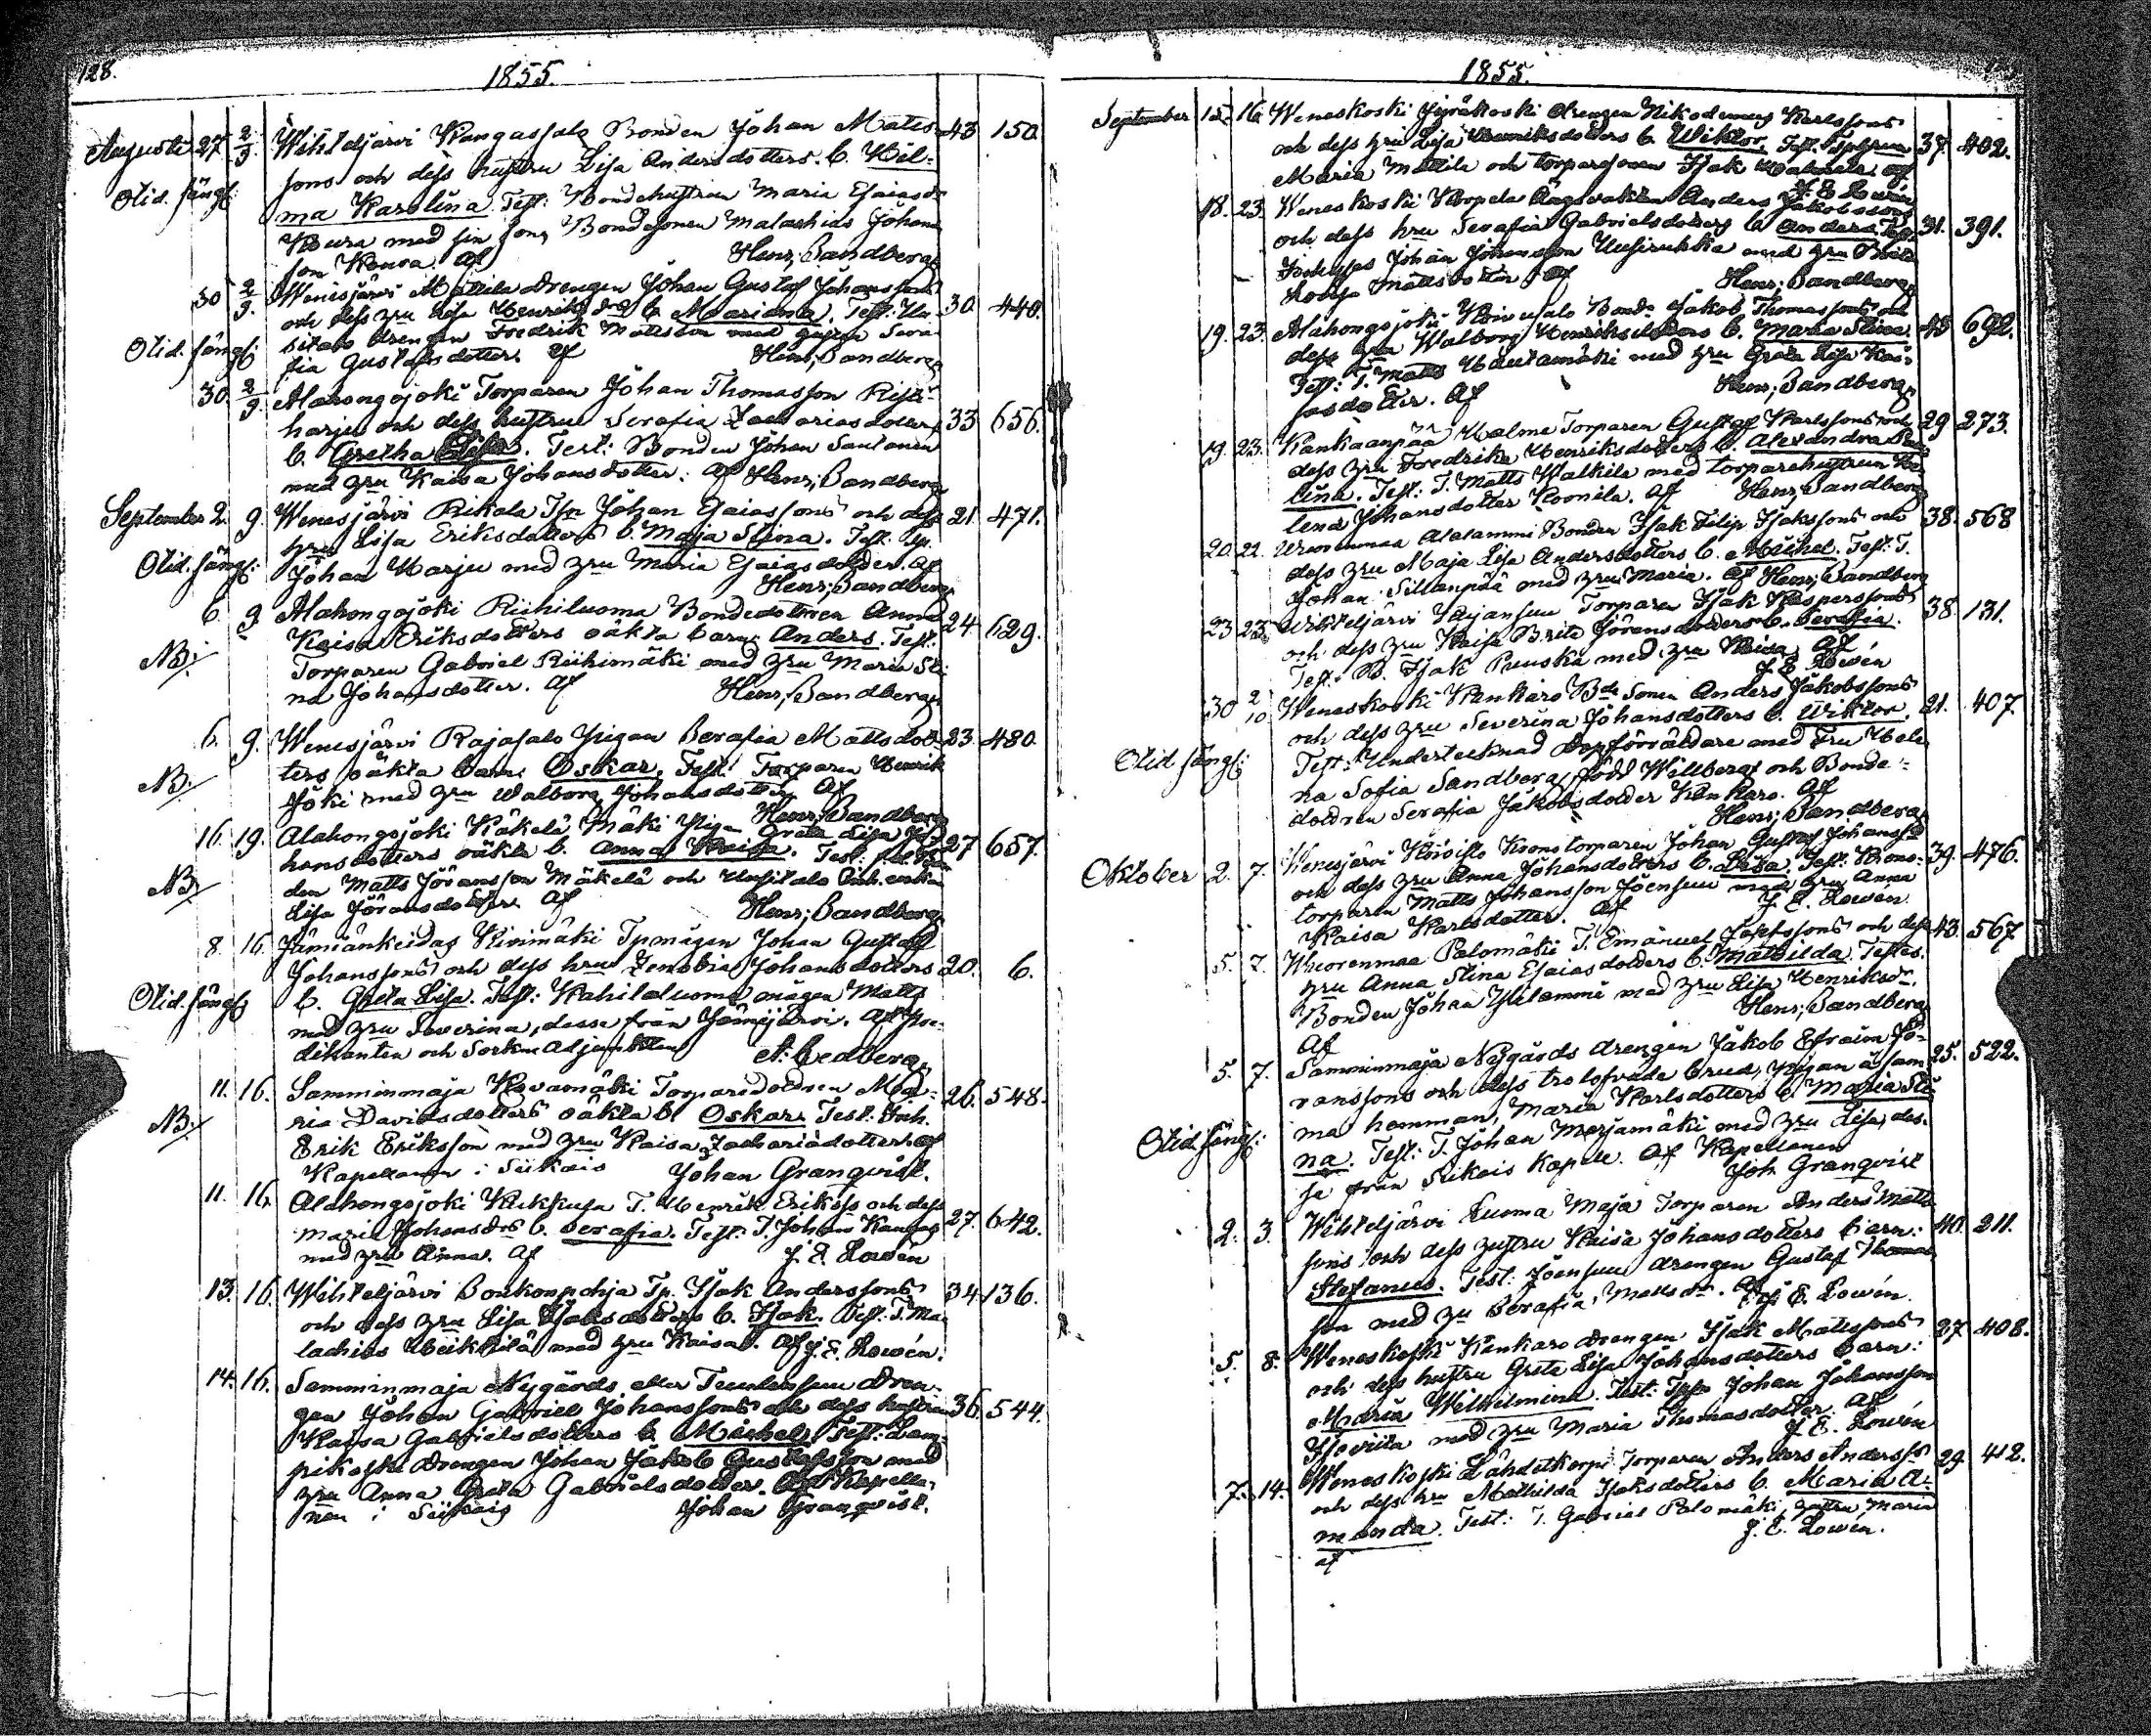 128.
1855.
Augusti 27 2/9. Wihteljärvi Kangassalo Bonden Johan Matts- 43 150.
sons och dess hustru Lisa Andersdotters b. Wil-
Otid. fängt:
ma Karolina. Test: Bondehustrun Maria Esaiasd:
Koura med sin son, Bondesonen Malachias Johans
son Koura. Af Henr; Sandberg
30 2/9. Wenesjärvi Mattila drengen Johan Gustaf Johanssons 30. 440.
och dess hru Lisa Henriksd:s b. Mariana. Test: Uu-
sitalo drengen Fredrik Mattsson med pigan Sera-
Otid. fängt: fia Gustafsdotter. Af Henr; Sandberg
30. 2/9. Alahongojoki Torparen Johan Thomasson Risti-
harju och dess hustru Serafia Zachariasdotters 33 656.
b. Gretha Lisa. Test: Bonden Johan Santanen
med hru Kaisa Johansdotter. Af Henr; Sandberg
September 2. 9. Wenesjärvi Rikala Tpn Johan Esaiassons och dess 21. 471.
hru Lisa Eriksdotters b. Maja Stina. Test: Tp.
Otid. fängt: Johan Harju med hru Maria Esaiasdotter. Af
Henr; Sandberg
6. 9. Alahongojoki Riihiluoma Bondedottren Anna 24. 629.
Kaisa Eriksdotters oäkta barn: Anders. Test:
NB: Torparen Gabriel Riihimäki med hru Maria Sti-
na Johansdotter. Af Henr; Sandberg
6. 9. Wenesjärvi Rajasalo Pigan Serafia Mattsdot- 23. 480.
ters oäkta barn: Oskar. Test: Torparen Henrik
NB: Joki med hru Walborg Johansdotter. Af
Henr; Sandberg
16. 19. Alahongojoki Käkelä Mäki Pigan Greta Lisa Jo-
hansdotters oäkta b. Anna Kaisa. Test: 27 657.
den Matts Jöransson Mäkelä och Uusitalo Inh. enkan
NB: Lisa Jöransdotter. Af Henr; Sandberg
8. 16. Jämiänkeidas Kivimäki Tpmågen Johan Gustaf
Johanssons och dess hru Zenobia Johansdotters 20. 6.
Otid. fängt b. Greta Lisa. Test: Kahilaluoma mågen Matts
med hru Severina, desse från Jämijärvi. Af Pre-
dikanten och Sockne Adjunkten A: Cedberg
11. 16. Samminmaja Kovamäki Torparedottren Ma- 26. 548.
ria Davidsdotters oäkta b. Oskar. Test: Inh.
NB: Erik Eriksson med hru Kaisa Zachariadotter. Af
Kapellanen i Siikais Johan Granqvist.
11. 16. Alahongojoki Kukkusa T. Henrik Erikss: och dess
Maria Johansd:s b. Serafia. Test: T. Johan Kangas 27. 642.
med hru Anna. Af J. E. Lowén
13. 16. Wihteljärvi Bonkonpohja Tp. Isak Anderssons 34. 136.
och dess hru Lisa Isaksdotters b. Isak. Test: T. Ma-
lachias Heikkilä med hru Kaisa. Af J. E. Lowén.
14. 16. Samminmaja Nygårds eller Tuulensuu Dren-
gen Johan Gabriel Johanssons och dess hustrus 36. 544.
Kaisa Gabrielsdotters b. Michel. Test: Lam-
pikoski Drengen Johan Jakob Gustafsson med
hru Anna Greta Gabrielsdotter. Af Kapella-
nen i Siikais Johan Granqvist.
1855.
September 15. 16. Weneskoski Jyräkoski drengen Nikodemus Karlssons
och dess hru Lisa Henriksdotters b. Wiktor. Test: Tphrun 37. 402.
Maria Mattila och torparesonen Isak Af
J. E. Lowén
18. 23. Weneskoski Korpela Skogsvaktaren Anders Jakobssons
och dess hru Serafia Gabrielsdotters b. Anders. Test: 31. 391.
Johan Johansson Uusirukka med hru Brita
Kaisa Mattsdotter. Af Henr; Sandberg
19. 23. Alahongojoki Koivusalo Bond: Jakob Thomassons och
dess hru Walborg Henriksdotters b. Maria Stina. 45 692.
Test: T. Matts Hautamäki med hru Greta Lisa Kai-
sasdotter. Af Henr; Sandberg
19. 23. Kankaanpää Halme Torparen Gustaf Karlssons och 29 273.
dess hru Fredrika Henriksdotters b. Alexandra Pau-
lina. Test: T. Matts Walkila med torparehustrun He-
lena Johansdotter Koonila. Af Henr; Sandberg
20. 22. Wuorenmaa Alalammi Bonden Isak Filip Isakssons och 38. 568
dess hru Maja Lisa Andersdotters b. Michel. Test: T.
Johan Sillanpää med hru Maria. Af Henr; Sandberg
23 23. Wihteljärvi Kajansuu Torparen Isak Kaspersssons 38. 131.
och dess hru Kaisa Brita Göransdotters b. Serafia.
Test: B. Isak Punska med hru Kaisa. Af
J. E. Lowén
30 2/10 Weneskoski Kankaro Bde Sonen Anders Jakobssons 21. 407.
och dess hru Severina Johansdotters b. Wiktor.
Otid. fängt: Test: Undertecknad Dopförrättare med Fru Hele-
na Sofia Sandberg, född Willberg och Bonde-
dottren Serafia Jakobsdotter Kankaro. Af
Henr; Sandberg
Oktober 2. 7. Wenesjärvi Koivisto Kronotorparen Johan Gustaf Johanss:s 39. 476.
och dess hru Anna Johansdotters b. Lisa. Test: Krono-
torparen Matts Johansson Joensuu med hru Anna
Kaisa Karlsdotter. Af J. E. Lowén.
5. 7. Wuorenmaa Palomäki T. Emanuel Josefssons och dess 43. 567
hru Anna Stina Esaiasdotters b. Mathilda. Testes.
Bonden Johan Ylilammi med hru Lisa Henriksdr.
Af Henr; Sandberg
5. 7. Samminmaja Nygårds drengen Jakob Efraim Jö- 25. 522.
ranssons och dess trolofvade brud, pigan å sam-
ma hemman, Maria Karlsdotters b. Maria Sti-
Otid. fängt: na. Test: T. Johan Marjamäki med hru Lisa, des-
se från Siikais Kapell. Af Kapellanen
Joh. Granqvist
2. 3. Wihteljärvi Luoma Maja Torparen Anders Matts- 40. 211.
sons och dess hustru Kaisa Johansdotters barn:
Stefanus. Test: Joensuu drengen Gustaf Thomas-
son med hru Serafia Mattsdr. Af J. E. Lowén.
5. 8. Weneskoski Kankaro drengen Isak Matssons 27. 408.
och dess hustru Greta Lisa Johansdotters barn:
Maria Wilhelmina. Test: Tpn Johan Johansson
med hru Maria Thomasdotter. Af
J. E. Lowén
7. 14. Weneskoski Lähdetkorpi Torparen Anders Anderss:s 29. 412.
och dess hru Mathilda Isaksdotters b. Maria A-
manda. Test: T. Gabriel Palomäki, hustru Maria
af J. E. Lowén.